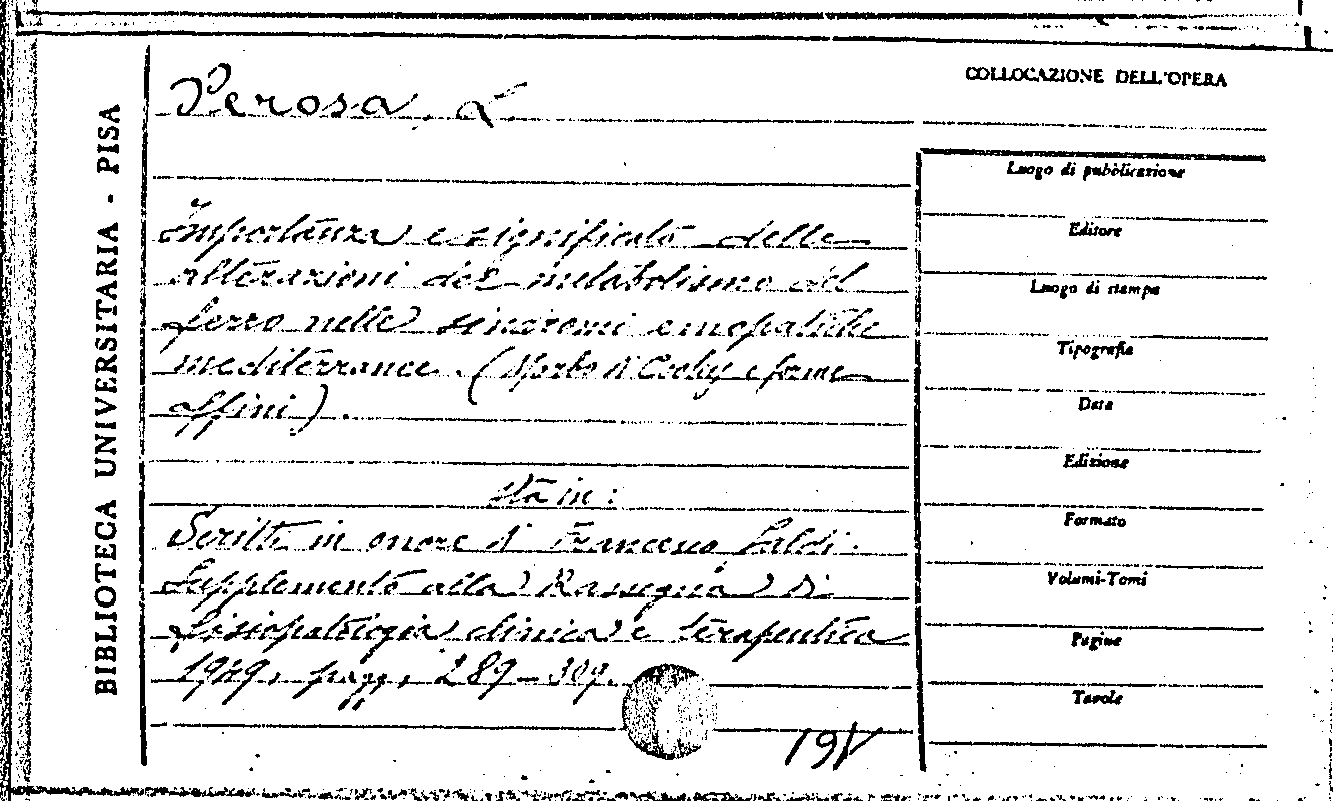 BIBLIOTECA UNIVERSITARIA - PISA
Perosa, L.
Importanza e significato delle
alterazioni del metabolismo del
ferro nelle sindromi emopatiche
mediterranee. (Morbo di Cooley e forme
affini).
sta in:
Scritti in onore di Francesco Galdi.
Supplemento alla Rassegna di
fisiopatologia clinica e terapeutica
1949, pagg, 289-309.
COLLOCAZIONE DELL'OPERA
Luogo di pubblicazione
Editore
Luogo di stampa
Tipografia
Data
Edizione
Formato
Volumi-Tomi
Pagine
Tavole